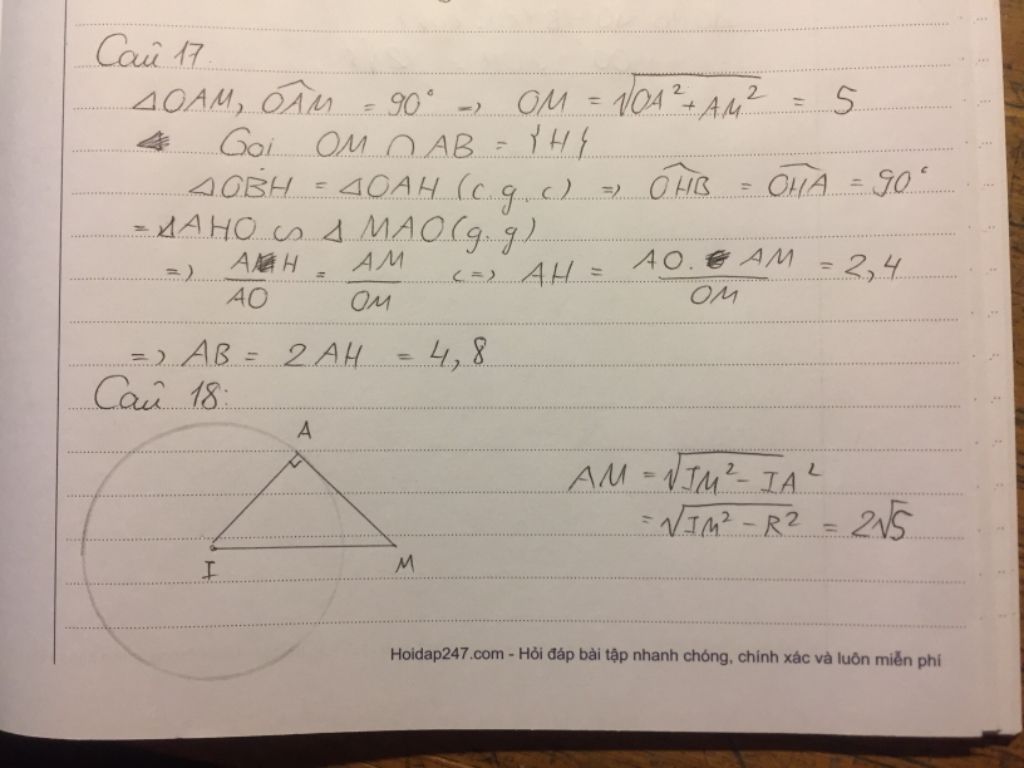 Caü 17
△OAM, OAM = 90° => OM = √OA² + AM² = 5
Goi OM ∩ AB = {H}
△OBH = △OAH (c.g.c) => OHB = OHA = 90°
=> △AHO ∽ △MAO (g.g)
=> AH/AO = AM/OM <=> AH = AO. AM/OM = 2,4
=> AB = 2AH = 4,8
Caü 18:
A
I
M
AM = √IM² - IA²
= √IM² - R² = 2√5
Hoidap247.com - Hỏi đáp bài tập nhanh chóng, chính xác và luôn miễn phí